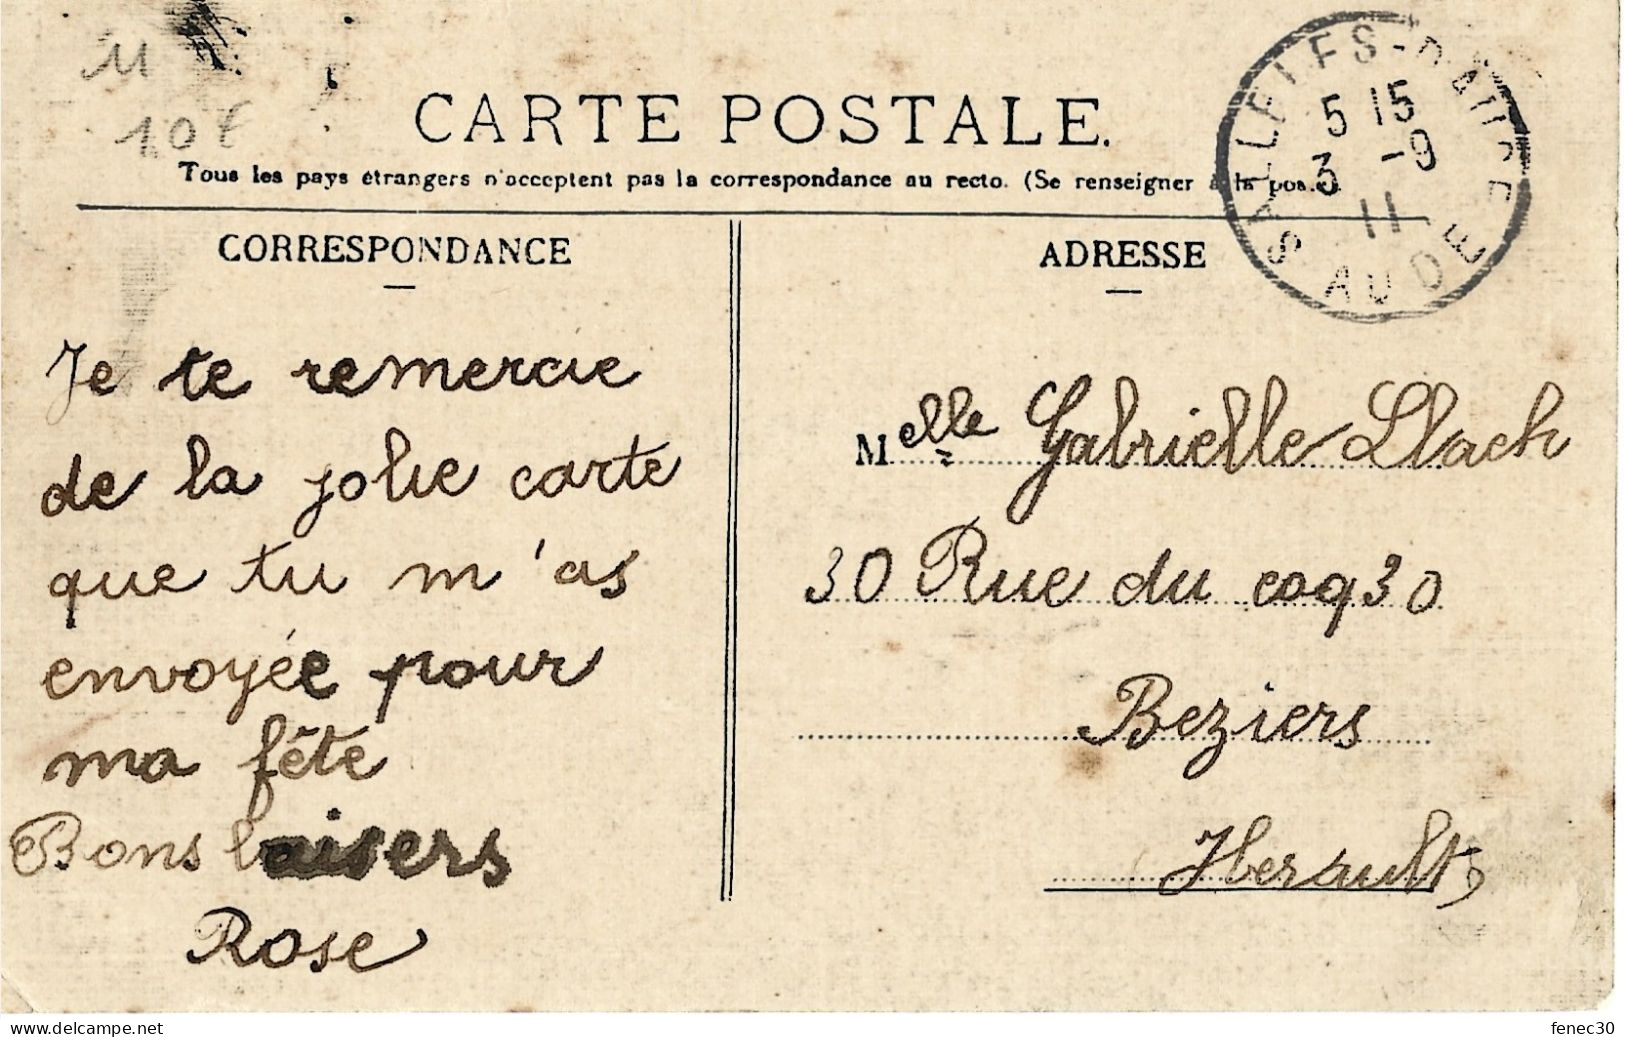 11
10€
CARTE POSTALE.
Tous les pays étrangers n'acceptent pas la correspondance au recto. (Se renseigner à la poste).
SALLELES-D'AUDE
5 15
3 -9
11
AUDE
CORRESPONDANCE
Je te remercie
de la jolie carte
que tu m'as
envoyée pour
ma fête
Bons baisers
Rose
ADRESSE
Melle Gabrielle Llach
30 Rue du coq 30
Beziers
Herault
delcampe.net
fenec30